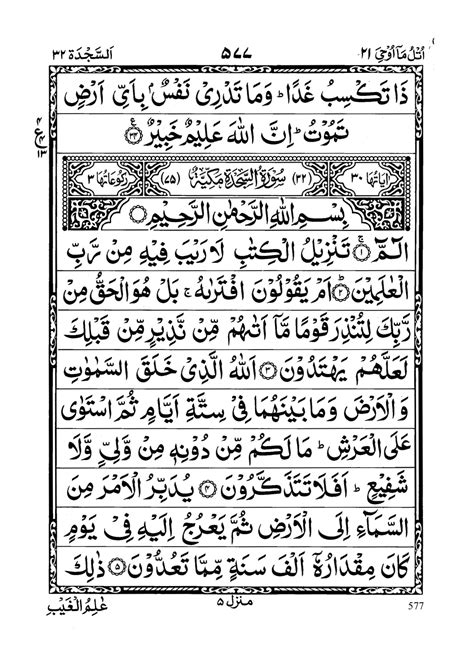 اُتْلُ مَآ اُوْحِيَ ٢١ ٥٧٧ اَلسَّجْدَة ٣٢
ذَا تَكْسِبُ غَدًا ؕ وَمَا تَدْرِىْ نَفْسٌۢ بِاَىِّ اَرْضٍ
تَمُوْتُ ؕ اِنَّ اللّٰهَ عَلِيْمٌ خَبِيْرٌ ۝٣٤
ع ٤ ٤ ١٣
اٰيَاتُهَا ٣٠ (٣٢) سُوْرَةُ السَّجْدَةِ مَكِّيَّةٌ (٧٥) رُكُوْعَاتُهَا ٣
بِسْمِ اللّٰهِ الرَّحْمٰنِ الرَّحِيْمِ ۝
الٓمّٓ ۝١ تَنْزِيْلُ الْكِتٰبِ لَا رَيْبَ فِيْهِ مِنْ رَّبِّ
الْعٰلَمِيْنَ ۝٢ اَمْ يَقُوْلُوْنَ افْتَرٰىهُ ۚ بَلْ هُوَ الْحَقُّ مِنْ
رَّبِّكَ لِتُنْذِرَ قَوْمًا مَّاۤ اَتٰىهُمْ مِّنْ نَّذِيْرٍ مِّنْ قَبْلِكَ
لَعَلَّهُمْ يَهْتَدُوْنَ ۝٣ اَللّٰهُ الَّذِىْ خَلَقَ السَّمٰوٰتِ
وَالْاَرْضَ وَمَا بَيْنَهُمَا فِىْ سِتَّةِ اَيَّامٍ ثُمَّ اسْتَوٰى
عَلَى الْعَرْشِ ؕ مَا لَكُمْ مِّنْ دُوْنِهٖ مِنْ وَّلِىٍّ وَّلَا
شَفِيْعٍ ؕ اَفَلَا تَتَذَكَّرُوْنَ ۝٤ يُدَبِّرُ الْاَمْرَ مِنَ
السَّمَآءِ اِلَى الْاَرْضِ ثُمَّ يَعْرُجُ اِلَيْهِ فِىْ يَوْمٍ
كَانَ مِقْدَارُهٗۤ اَلْفَ سَنَةٍ مِّمَّا تَعُدُّوْنَ ۝٥ ذٰلِكَ
577 منزل ٥ عٰلِمُ الْغَيْبِ